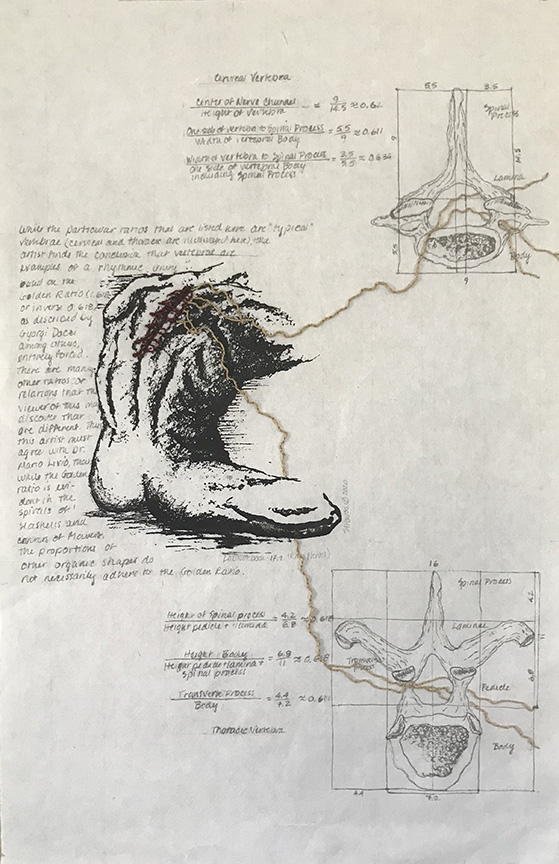 Cervical Vertebra
Center of Nerve Channel
Height of Vertebra
= 9/14.5 ≈ 0.62
One side of vertebra to Spinal Process
Width of vertebral Body
= 5.5/9 ≈ 0.611
Width of Vertebra to Spinal Process
One side of vertebral Body
including Spinal Process
= 3.5/5.5 ≈ 0.636
5.5
3.5
Spinal
Process
9
14.5
Lamina
5.5
Body
9
While the particular ratios that are listed here are "typical"
vertebrae (cervical and thoracic are illustrated here), the
artist finds the conclusion that vertebrae are
examples of a rhythmic unity
based on the
Golden Ratio (1.618
or inverse 0.618)
as described by
Gyorgi Doczi
among others,
entirely forced.
There are many
other ratios or
relations that the
viewer of this may
discover that
are different. Thus
this artist must
agree with Dr.
Mario Livio, that
while the Golden
ratio is evi-
dent in the
spirals of
seashells and
centers of flowers
the proportions of
other organic shapes do
not necessarily adhere to the Golden Ratio.
© 2020
Height of Spinal process
Height pedicle + lamina
= 4.2/6.8 ≈ 0.618
Height Body
Height pedicle + lamina +
Spinal process
= 6.8/11 ≈ 0.618
Transverse Process
Body
= 4.4/7.2 ≈ 0.611
Thoracic Vertebra
16
Spinal Process
4.2
Laminae
11
Transverse
Process
Pedicle
6.8
Body
4.4
7.2